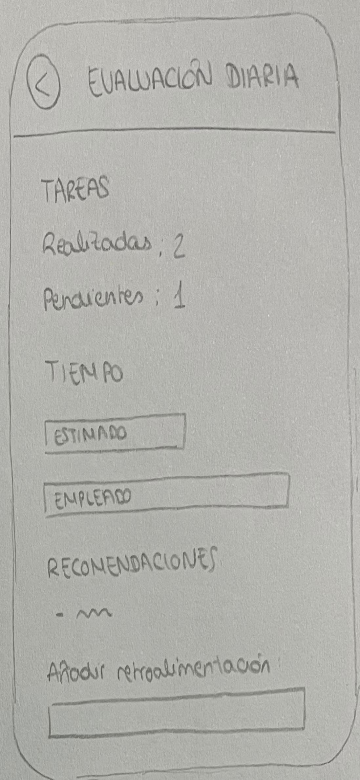 < EVALUACIÓN DIARIA
TAREAS
Realizadas: 2
Pendientes: 1
TIEMPO
ESTIMADO
EMPLEADO
RECOMENDACIONES
-
Añadir retroalimentación: